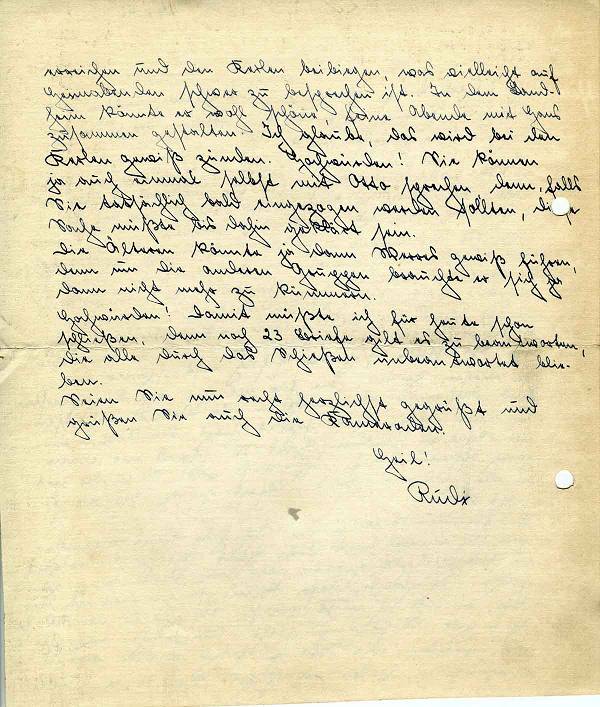 erreichen und den Kerlen beibiegen, was vielleicht auf
Heimabenden schwer zu besprechen ist. In dem Land-
heim könnte er wohl schöne, feine Abende mit Hans
zusammen gestalten. Ich glaube, das wird bei den
Kerlen gewiß zünden. Hochwürden! Sie können
ja auch einmal selbst mit Otto sprechen denn, falls
Sie tatsächlich bald eingezogen werden sollten, diese
Sache müßte bis dahin geklärt sein.
Die Älteren könnte ja dann gewiß führen,
denn um die anderen Gruppen brauchte er sich ja
dann nicht mehr zu kümmern.
Hochwürden! Damit müßte ich für heute schon
schließen, denn noch 23 Briefe gilt es zu beantworten,
die alle durch das Schießen unbeantwortet blie-
ben.
Seien Sie nun recht herzlichst gegrüßt und
grüßen Sie auch die Kameraden.
Heil!
Rudi